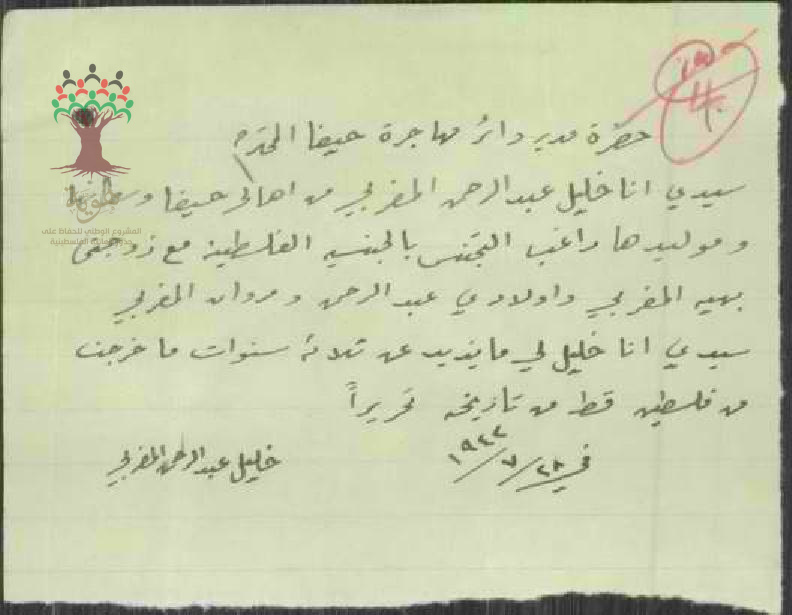 حضرة مدير دائرة مهاجرة حيفا المحترم
سيدي انا خليل عبد الرحمن المغربي من اهالي حيفا وسكانها
ومواليدها راغب التجنس بالجنسيه الفلسطينية مع زوجتي
بهيه المغربي واولادي عبد الرحمن ومروان المغربي
سيدي انا خليل لي ما يزيد عن ثلاثة سنوات ما خرجت
من فلسطين قط من تاريخه تحريراً
في ٢٨/٧/١٩٤٢
خليل عبد الرحمن المغربي
المشروع الوطني للحفاظ على
جذور العائلة الفلسطينية